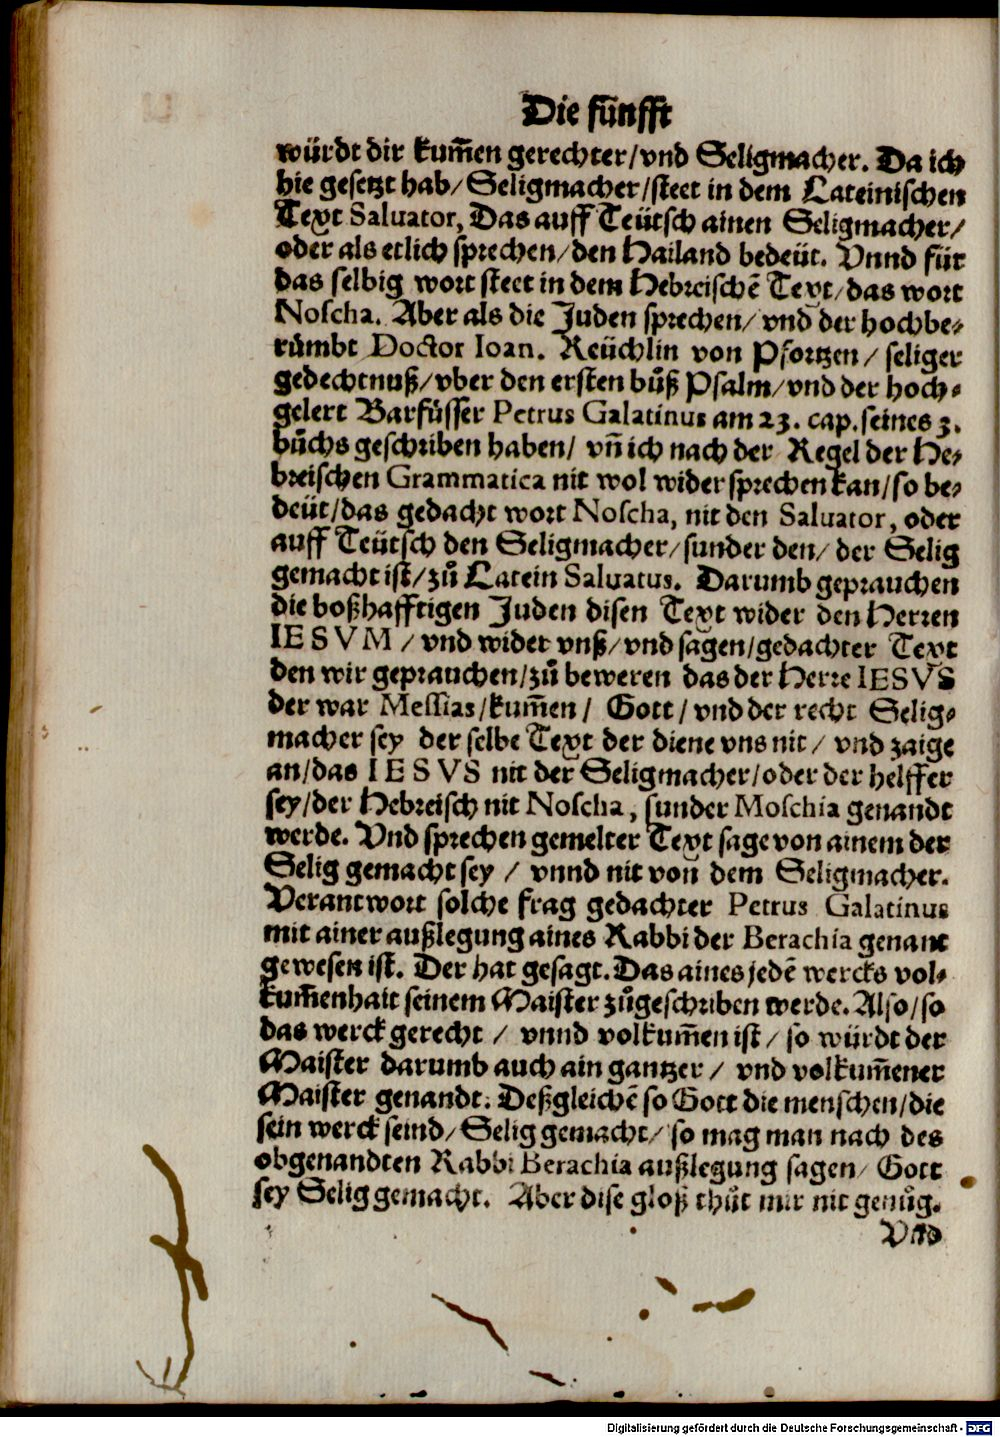 Die fünfft
würdt dir kum̃en gerechter/vnd Seligmacher. Da ich
hie gesetzt hab/Seligmacher/steet in dem Lateinischen
Text Saluator, Das auff Teütsch ainen Seligmacher/
oder als etlich sprechen/den Hailand bedeüt. Vnnd für
das selbig wort steet in dem Hebreischẽ Text/das wort
Noscha. Aber als die Juden sprechen/vnd der hochbe-
růmbt Doctor Ioan. Reüchlin von Pfortzen/seliger
gedechtnuß/vber den ersten bůß Psalm/vnd der hoch-
gelert Barfüsser Petrus Galatinus am 23. cap. seines 3.
bůchs geschriben haben/ vñ ich nach der Regel der He-
breischen Grammatica nit wol widersprechen kan/so be-
deüt/das gedacht wort Noscha, nit den Saluator, oder
auff Teütsch den Seligmacher/sunder den/ der Selig
gemacht ist/zů Latein Saluatus. Darumb geprauchen
die boßhafftigen Juden disen Text wider den Herren
IESVM/vnd wider vnß/vnd sagen/gedachter Text
den wir geprauchen/zů beweren das der Herre IESVS
der war Messias/kum̃en/ Gott/vnd der recht Selig-
macher sey der selbe Text der diene vns nit/ vnd zaige
an/das IESVS nit der Seligmacher/oder der helffer
sey/der Hebreisch nit Noscha, sunder Moschia genandt
werde. Vnd sprechen gemelter Text sage von ainem der
Selig gemacht sey / vnnd nit von dem Seligmacher.
Verantwort solche frag gedachter Petrus Galatinus
mit ainer außlegung aines Rabbi der Berachia genant
gewesen ist. Der hat gesagt. Das aines jedẽ wercks vol-
kum̃enhait seinem Maister zůgeschriben werde. Also/so
das werck gerecht / vnnd volkum̃en ist/ so würdt der
Maister darumb auch ain gantzer/ vnd volkum̃ener
Maister genandt. Deßgleichẽ so Gott die menschen/die
sein werck seind/Selig gemacht/ so mag man nach des
obgenandten Rabbi Berachia außlegung sagen/ Gott
sey Selig gemacht. Aber dise gloß thůt mir nit genůg.
Vnd
Digitalisierung gefördert durch die Deutsche Forschungsgemeinschaft - DFG